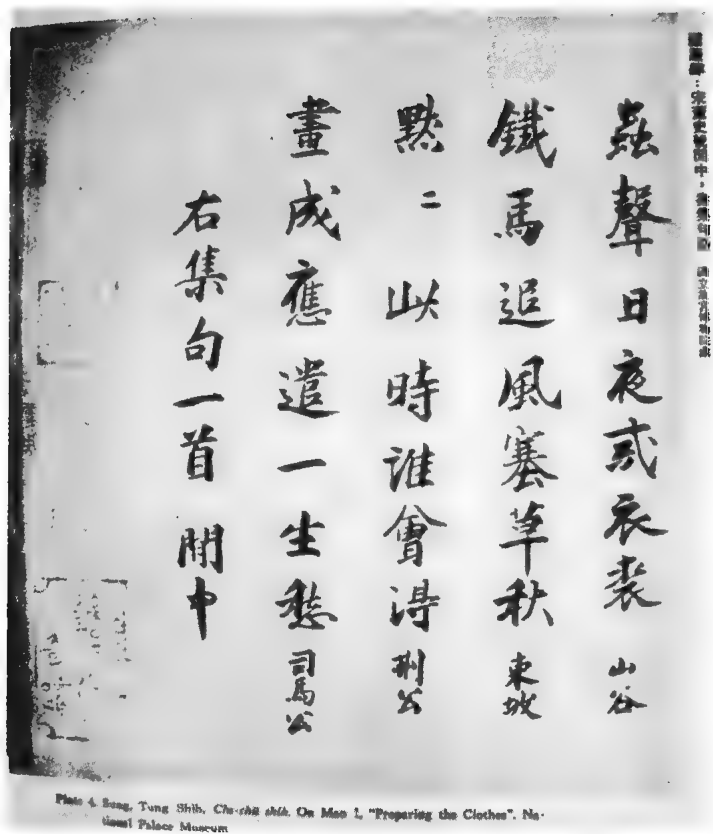 宋董史號閒中 國立故宮博物院藏
蟲聲日夜戒衣裘 山谷
鐵馬追風塞草秋 東坡
默二 此時誰會得 荆公
畫成應遣一生愁 司馬公
右集句一首 閒中
Plate 4. Sung, Tung Shih, Chu-chü shih. On Mao I, "Preparing the Clothes". Na-
tional Palace Museum